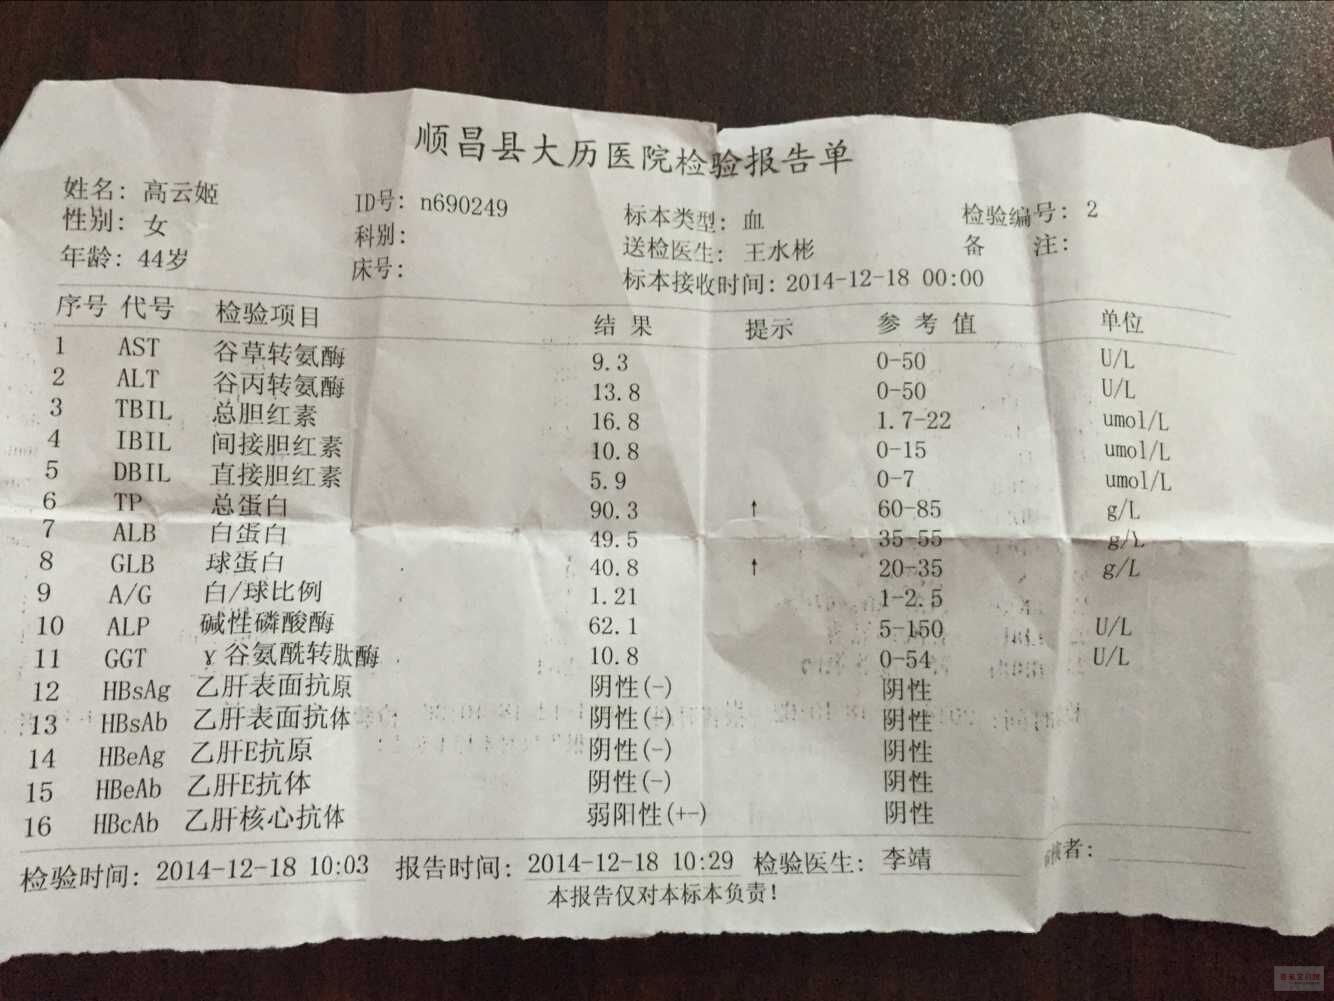 顺昌县大历医院检验报告单
姓名: 高云姬 ID号: n690249 标本类型: 血 检验编号: 2
性别: 女 科别: 送检医生: 王水彬 备 注:
年龄: 44岁 床号: 标本接收时间: 2014-12-18 00:00
序号 代号 检验项目 结 果 提示 参 考 值 单位
1 AST 谷草转氨酶 9.3 0-50 U/L
2 ALT 谷丙转氨酶 13.8 0-50 U/L
3 TBIL 总胆红素 16.8 1.7-22 umol/L
4 IBIL 间接胆红素 10.8 0-15 umol/L
5 DBIL 直接胆红素 5.9 0-7 umol/L
6 TP 总蛋白 90.3 ↑ 60-85 g/L
7 ALB 白蛋白 49.5 35-55 g/L
8 GLB 球蛋白 40.8 ↑ 20-35 g/L
9 A/G 白/球比例 1.21 1-2.5
10 ALP 碱性磷酸酶 62.1 5-150 U/L
11 GGT γ谷氨酰转肽酶 10.8 0-54 U/L
12 HBsAg 乙肝表面抗原 阴性(-) 阴性
13 HBsAb 乙肝表面抗体 阴性(-) 阴性
14 HBeAg 乙肝E抗原 阴性(-) 阴性
15 HBeAb 乙肝E抗体 阴性(-) 阴性
16 HBcAb 乙肝核心抗体 弱阳性(+-) 阴性
检验时间: 2014-12-18 10:03 报告时间: 2014-12-18 10:29 检验医生: 李靖 审核者:
本报告仅对本标本负责!